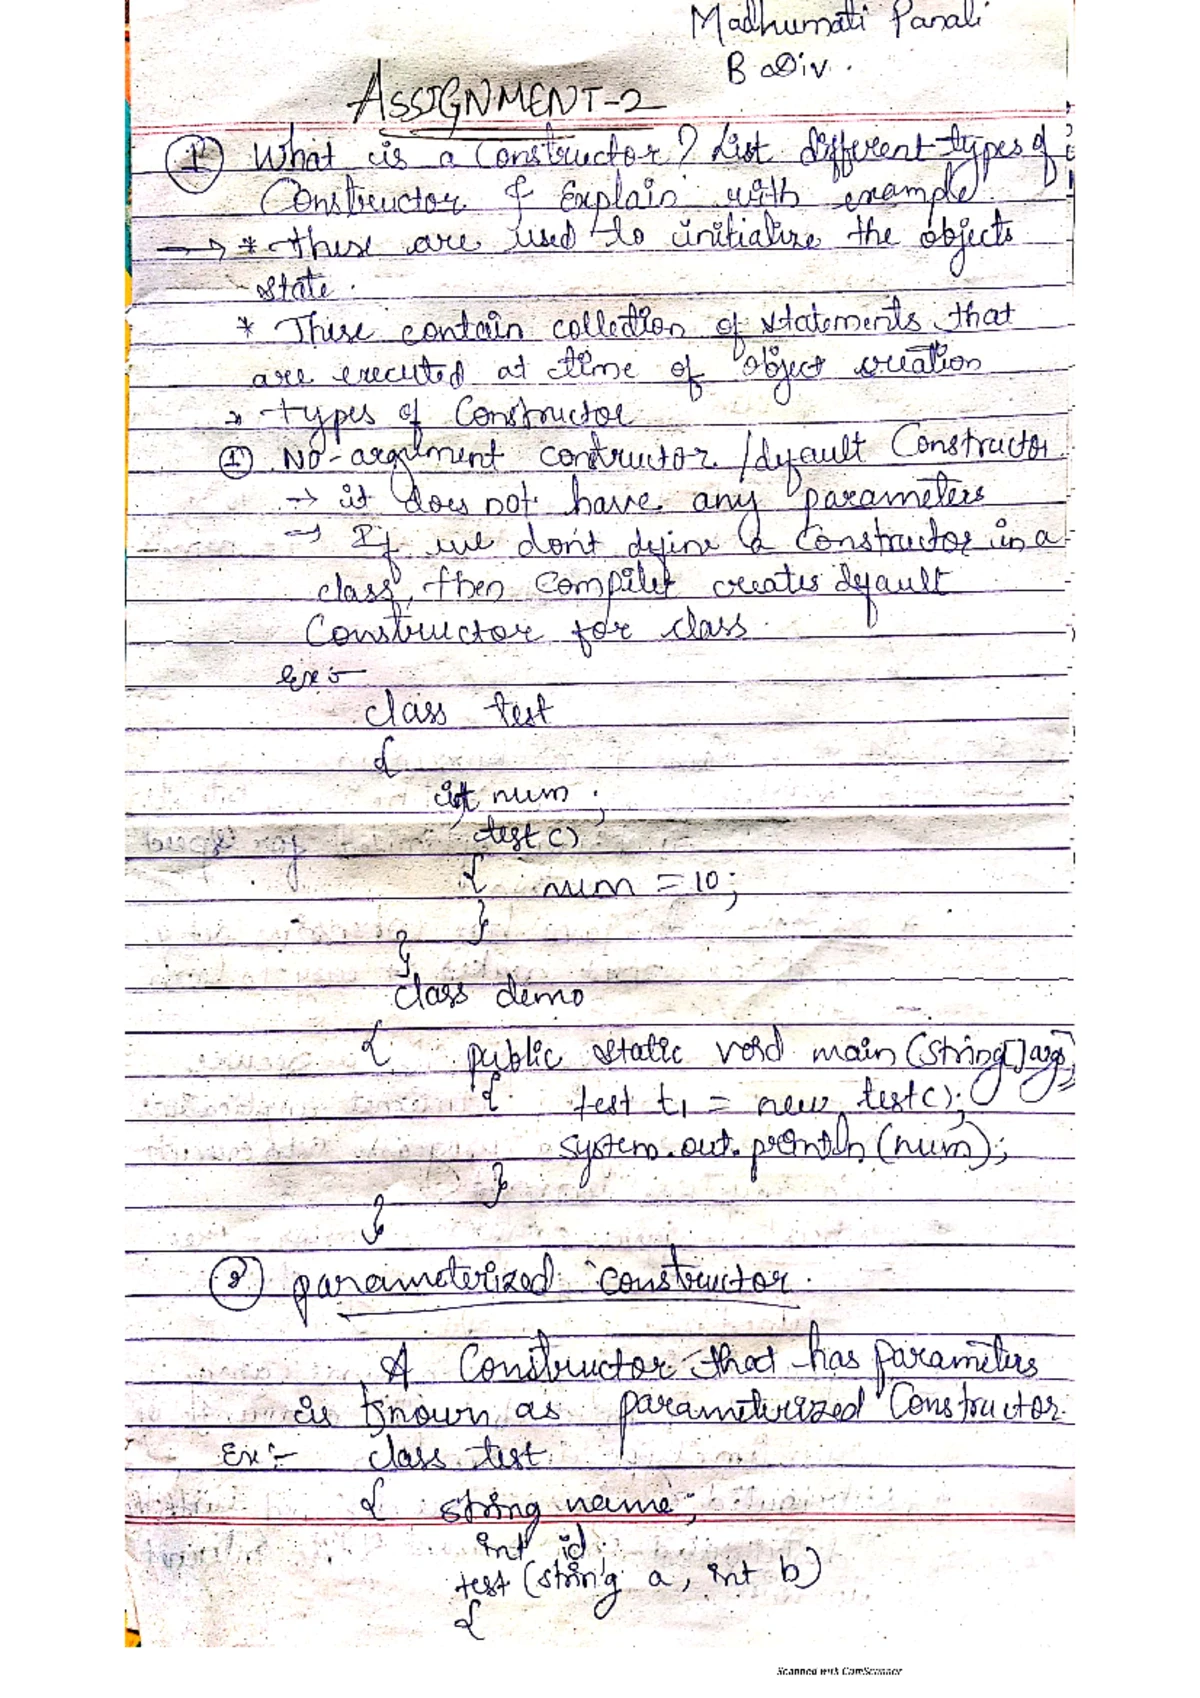 Madhumati Panali
B Div.
ASSIGNMENT-2
1 What is a Constructor? List different types of
Constructor & Explain with example.
→ * These are used to initialize the objects
state.
* These contain collection of statements that
are executed at time of object creation
* types of Constructor
1 No-argument constructor /default Constructor.
→ it does not have any parameters
→ If we don't define a Constructor in a
class, then compiler creates default
Constructor for class.
Ex:-
class test
{
int num ;
test ()
{ num = 10;
}
}
class demo
{ public static void main (String[] args)
{ test t1 = new test();
system.out.println (num);
}
}
2 parameterized constructor.
A Constructor that has parameters
is known as parameterized Constructor.
Ex:- class test
{ string name;
int id;
test (string a, int b)
{
Scanned with CamScanner